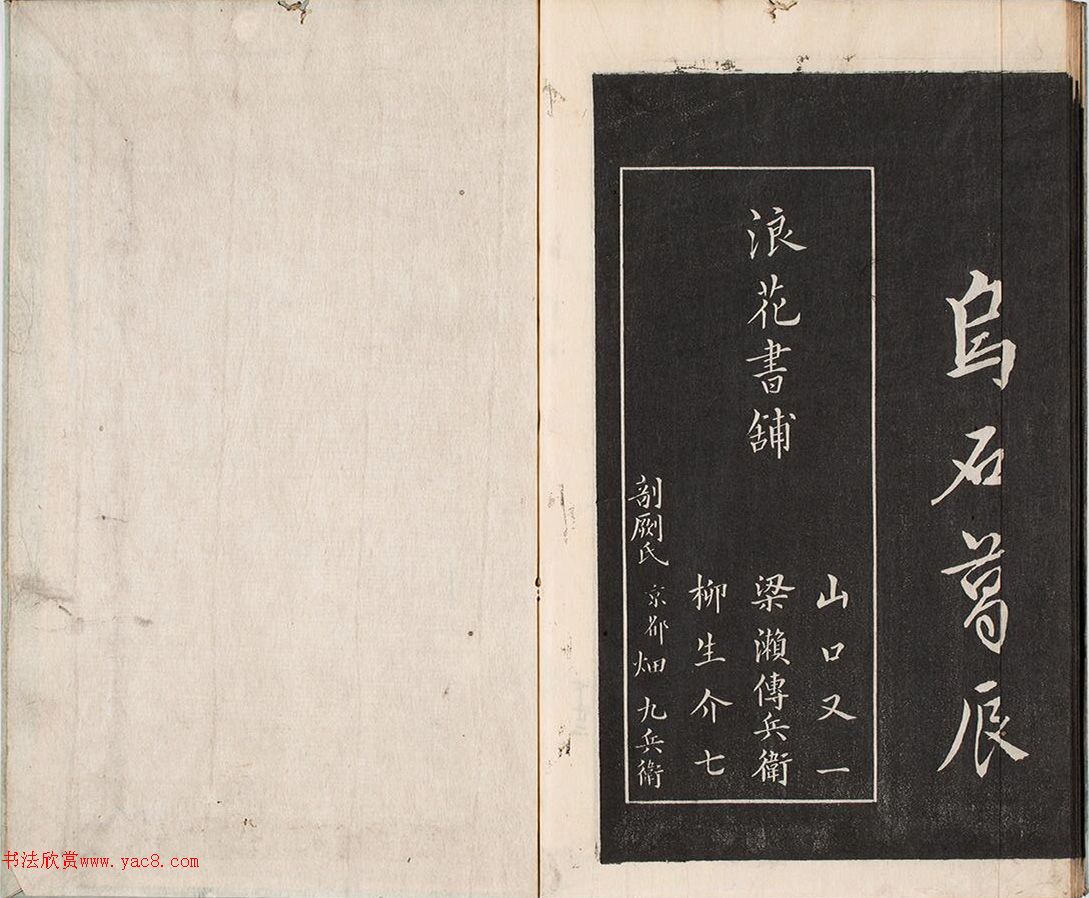 烏石葛辰
浪花書舖
山口又一
梁瀨傳兵衛
柳生介七
剞劂氏 京都 畑 九兵衛
书法欣赏www.yac8.com